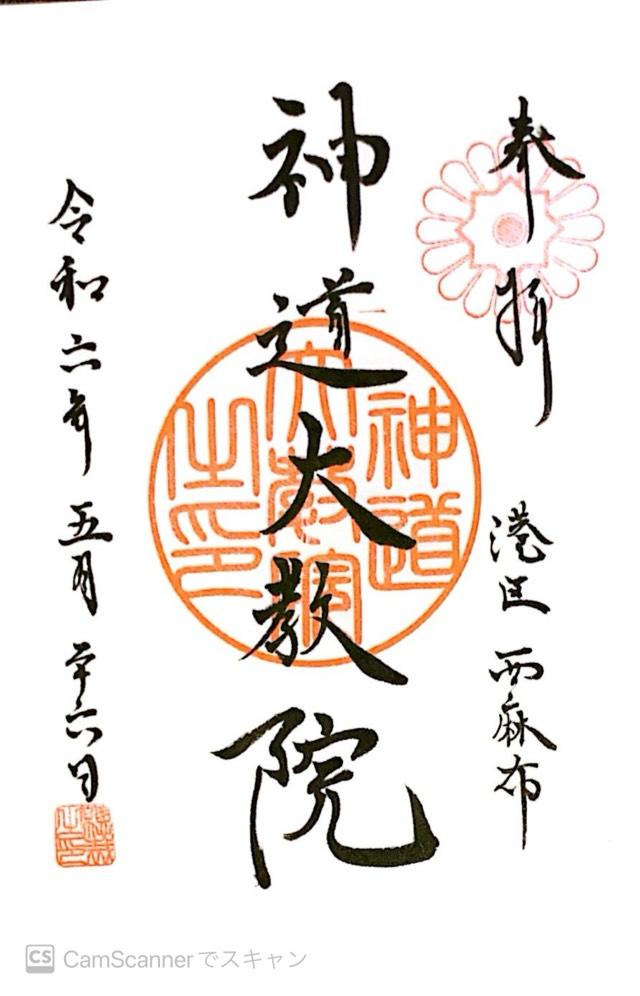 奉拝
港区西麻布
神道大教院
神道
大教院
之印
令和六年五月廿六日
CS CamScannerでスキャン